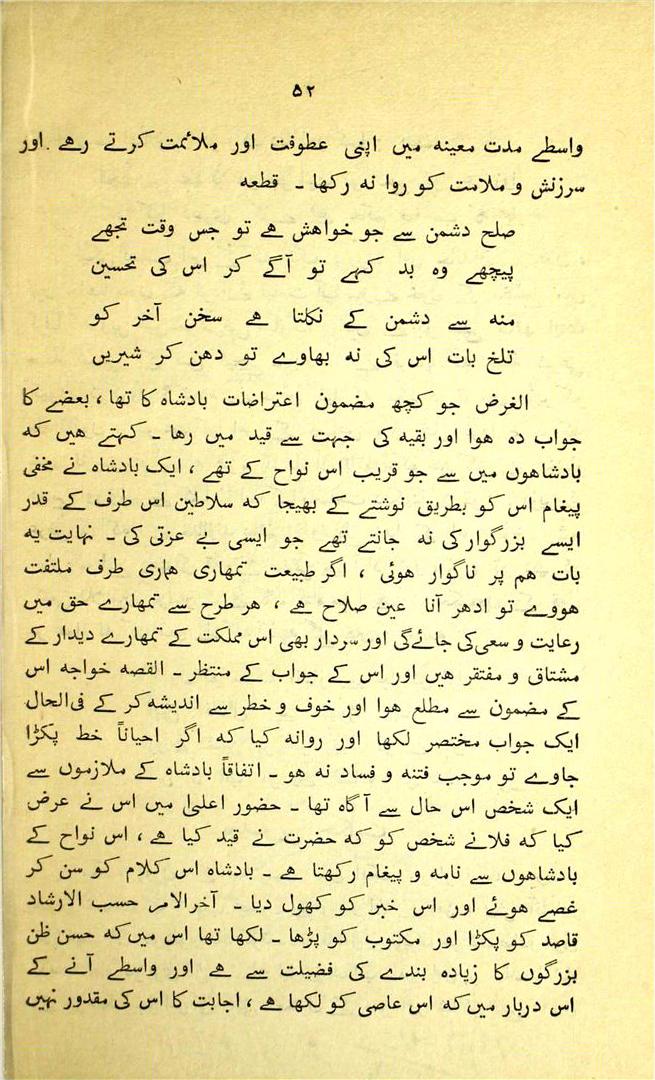 ۵۲
واسطے مدت معینہ میں اپنی عطوفت اور ملائمت کرتے رہے۔ اور
سرزنش و ملامت کو روا نہ رکھا ۔ قطعہ
صلح دشمن سے جو خواھش ہے تو جس وقت تجھے
پیچھے وہ بد کہے تو آگے کر اس کی تحسین
منہ سے دشمن کے نکلتا ہے سخن آخر کو
تلخ بات اس کی نہ بھاوے تو دھن کر شیریں
الغرض جو کچھ مضمون اعتراضات بادشاہ کا تھا ، بعضے کا
جواب دہ ھوا اور بقیہ کی جہت سے قید میں رھا ۔ کہتے ھیں کہ
بادشاھوں میں سے جو قریب اس نواح کے تھے ، ایک بادشاہ نے مخفی
پیغام اس کو بطریق نوشتے کے بھیجا کہ سلاطین اس طرف کے قدر
ایسے بزرگوار کی نہ جانتے تھے جو ایسی بے عزتی کی ۔ نہایت یہ
بات ھم پر ناگوار ھوئی ، اگر طبیعت تمھاری ھماری طرف ملتفت
ھووے تو ادھر آنا عین صلاح ہے ، ھر طرح سے تمھارے حق میں
رعایت و سعی کی جائے گی اور سردار بھی اس مملکت کے تمھارے دیدار کے
مشتاق و مفتقر ھیں اور اس کے جواب کے منتظر ۔ القصہ خواجہ اس
کے مضمون سے مطلع ھوا اور خوف و خطر سے اندیشہ کر کے فی الحال
ایک جواب مختصر لکھا اور روانہ کیا کہ اگر احیاناً خط پکڑا
جاوے تو موجب فتنہ و فساد نہ ھو ۔ اتفاقاً بادشاہ کے ملازموں سے
ایک شخص اس حال سے آگاہ تھا ۔ حضور اعلیٰ میں اس نے عرض
کیا کہ فلانے شخص کو کہ حضرت نے قید کیا ہے ، اس نواح کے
بادشاھوں سے نامہ و پیغام رکھتا ہے ۔ بادشاہ اس کلام کو سن کر
غصے ھوئے اور اس خبر کو کھول دیا ۔ آخرالامر حسب الارشاد
قاصد کو پکڑا اور مکتوب کو پڑھا ۔ لکھا تھا اس میں کہ حسن ظن
بزرگوں کا زیادہ بندے کی فضیلت سے ہے اور واسطے آنے کے
اس دربار میں کہ اس عاصی کو لکھا ہے ، اجابت کا اس کی مقدور نہیں